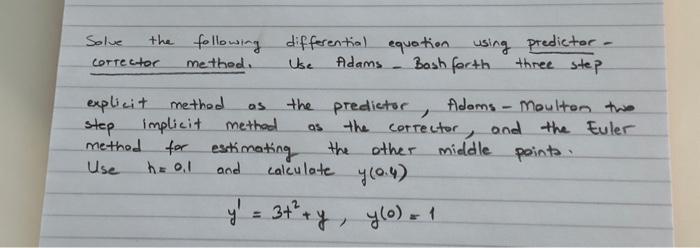 Solve the following differential equation using predictor-
corrector method. Use Adams - Bashforth three step
explicit method as the predictor, Adams - Moulton two
step implicit method as the corrector, and the Euler
method for estimating the other middle points.
Use h=0.1 and calculate y(0.4)
y' = 3t² + y, y(0) = 1